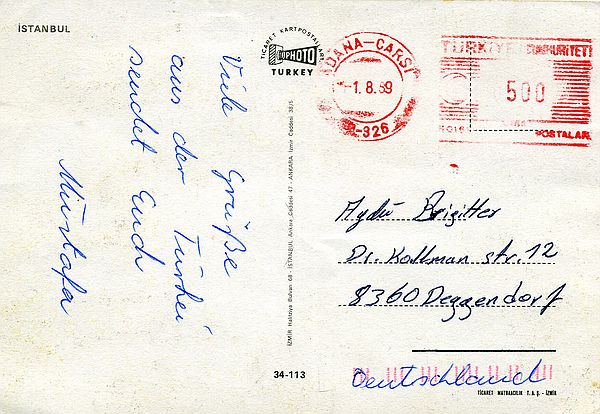 İSTANBUL
Viele Grüße
aus der Türkei
sendet Euch
Mustafa
TİCARET KARTPOSTALLARI
TOPHOTO
TURKEY
ADANA-ÇARŞI
-1.8.89
-326
TÜRKİYE CUMHURİYETİ
500
POSTALAR
İZMİR Hakteya Bulvarı 68 - İSTANBUL Ankara Caddesi 47 - ANKARA İzmir Caddesi 38/5
Aydü Brigitter
Dr. Kollman str. 12
8360 Deggendorf
Deutschland
34-113
TİCARET MATBAACILIK T.A.Ş. - İZMİR